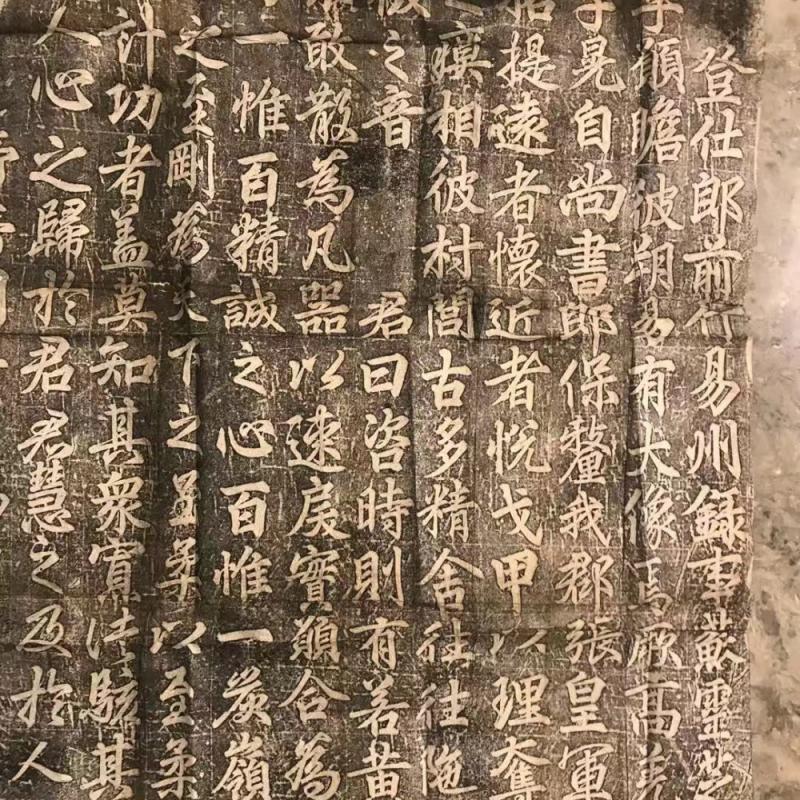 登仕郎前行易州錄事蘇靈芝
頎瞻彼朔易有大像焉厥高
子晃自尚書郎保釐我郡張皇軍
招提遠者懷近者悅戈甲以理奪
之瘼相彼村閭古多精舍往往陁
之音 君曰咨時則有若黄
敢散為凡器以速戾實願合為
一惟百精誠之心百惟一炭嶺
之至剛為天下之至柔以至柔
計功者蓋莫知其衆寡法駭其
人心之歸於君君慧之及於人